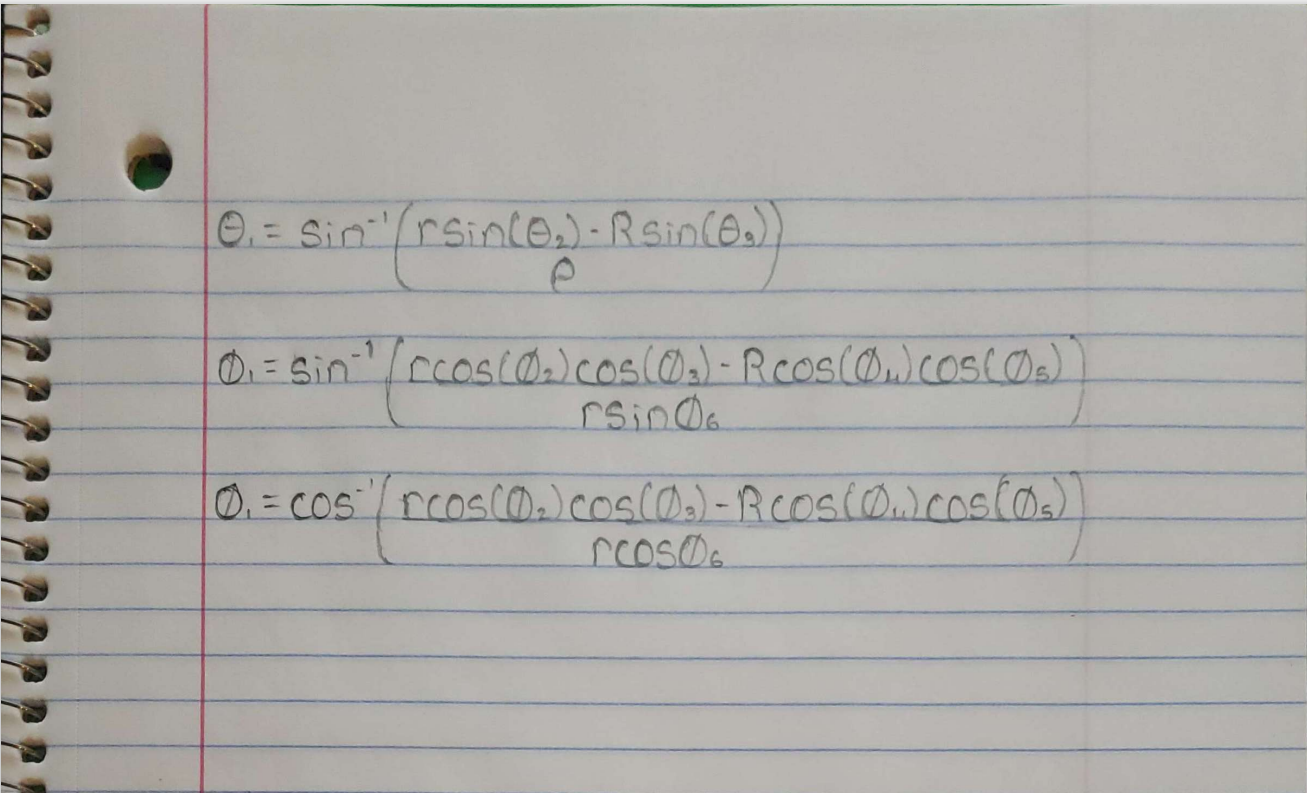 θ₁ = sin⁻¹((r sin(θ₂) - R sin(θ₃))/ρ)
Ø₁ = sin⁻¹((r cos(Ø₂) cos(Ø₃) - R cos(Ø₄) cos(Ø₅))/(r sin Ø₆))
Ø₁ = cos⁻¹((r cos(Ø₂) cos(Ø₃) - R cos(Ø₄) cos(Ø₅))/(r cos Ø₆))